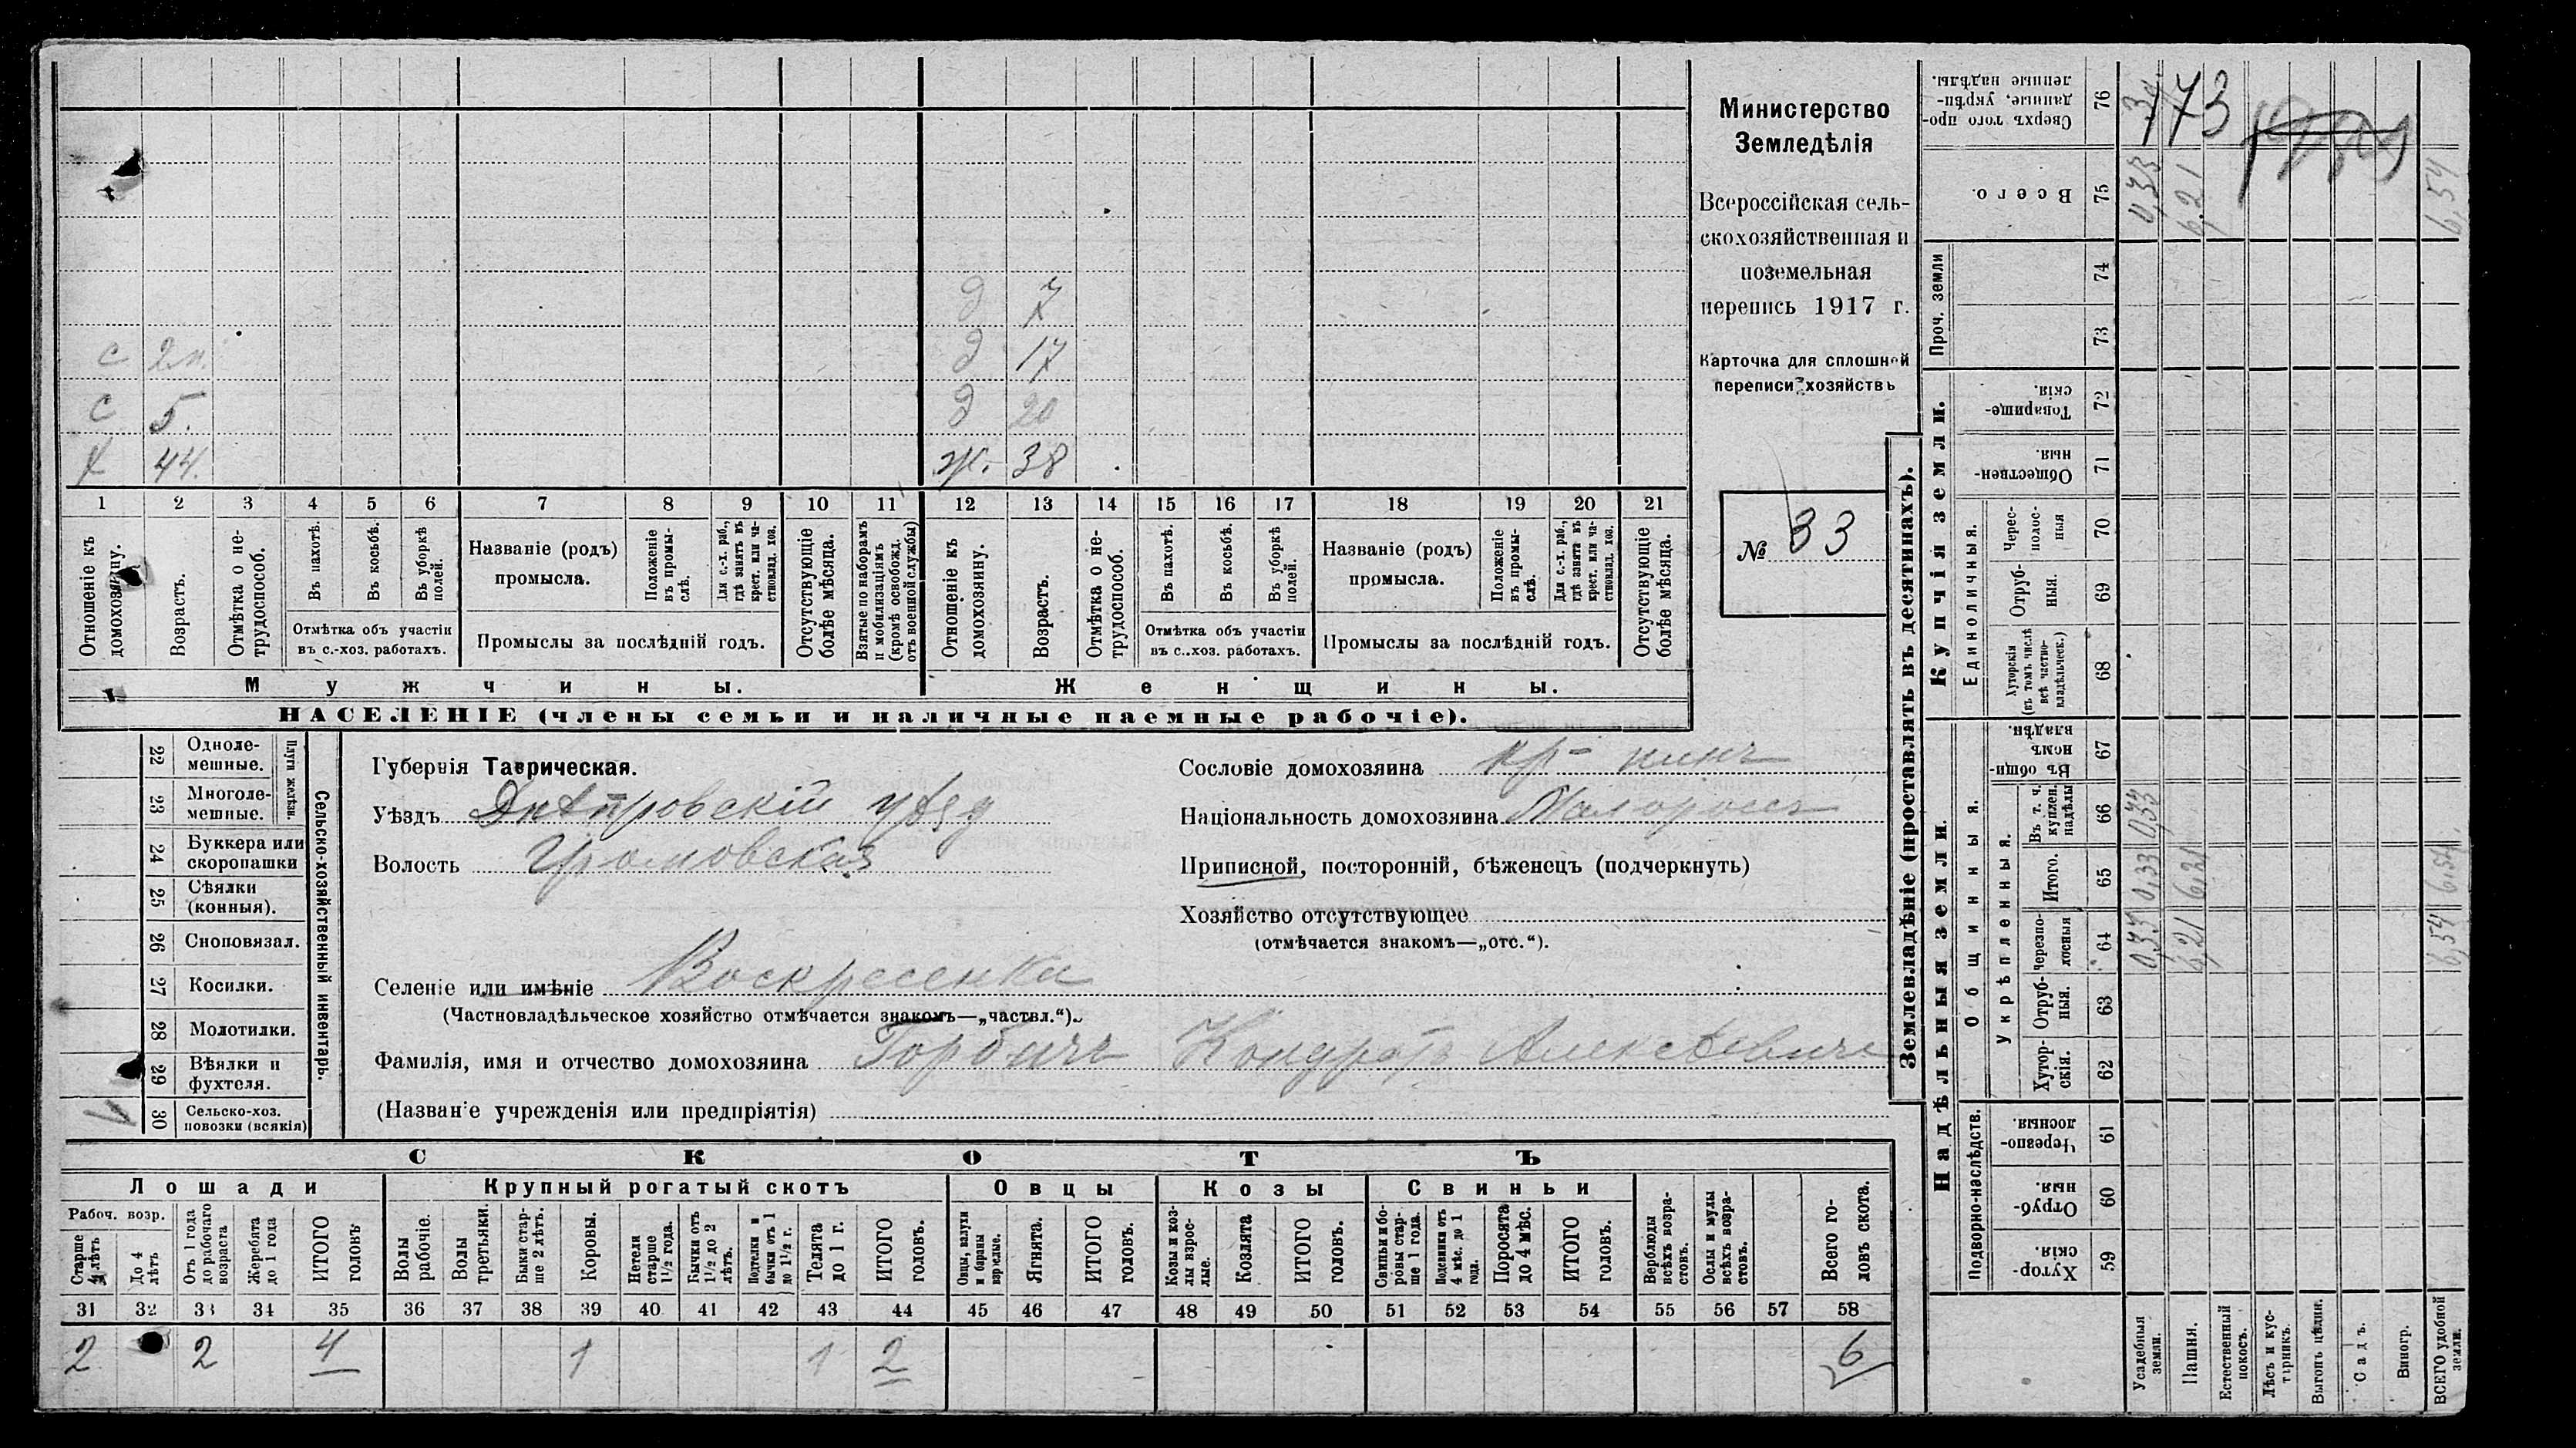 Министерство
Земледѣлія
Всероссійская сель-
скохозяйственная и
поземельная
перепись 1917 г.
Карточка для сплошной
переписи хозяйствъ
№ 33
д 7
с 2 д 17
с 5. д 20
Х 44. ж. 38
1 2 3 4 5 6 7 8 9 10 11 12 13 14 15 16 17 18 19 20 21
Отношеніе къ домохозяину.
Возрастъ.
Отмѣтка о не-трудоспособ.
Въ пахотѣ.
Въ косьбѣ.
Въ уборкѣ полей.
Отмѣтка объ участіи
въ с.-хоз. работахъ.
Названіе (родъ)
промысла.
Положеніе въ промы-слѣ.
Для с.-х. раб., гдѣ занятъ въ крест. или ча-стновлад. хоз.
Промыслы за послѣдній годъ.
Отсутствующіе болѣе мѣсяца.
Взятые по наборамъ и мобилизаціямъ (кромѣ освобожд. отъ военной службы)
Отношеніе къ домохозяину.
Возрастъ.
Отмѣтка о не-трудоспособ.
Въ пахотѣ.
Въ косьбѣ.
Въ уборкѣ полей.
Отмѣтка объ участіи
въ с..хоз. работахъ.
Названіе (родъ)
промысла.
Положеніе въ промы-слѣ.
Для с.-х. раб., гдѣ занята въ крест. или ча-стновлад. хоз.
Промыслы за послѣдній годъ.
Отсутствующіе болѣе мѣсяца.
Мужчины.
Женщины.
НАСЕЛЕНІЕ (члены семьи и наличные наемные рабочіе).
Сельско-хозяйственный инвентарь.
Плуги желѣзн.
22 Одноле-мешные.
23 Многоле-мешные.
24 Буккера или скоропашки
25 Сѣялки (конныя).
26 Сноповязал.
27 Косилки.
28 Молотилки.
29 Вѣялки и фухтеля.
30 Сельско-хоз. повозки (всякія)
Губернія Таврическая.
Уѣздъ Днѣпровскій уѣзд
Волость Громовская
Селеніе или имѣніе Воскресенка
(Частновладѣльческое хозяйство отмѣчается знакомъ—„частвл.“).
Фамилія, имя и отчество домохозяина Горбичъ Кондратъ Алексѣевичъ
(Названіе учрежденія или предпріятія)
Сословіе домохозяина кр-нинъ
Національность домохозяина Малороссъ
Приписной, посторонній, бѣженецъ (подчеркнуть)
Хозяйство отсутствующее
(отмѣчается знакомъ—„отс.“).
СКОТЪ
Лошади Крупный рогатый скотъ Овцы Козы Свиньи
Рабоч. возр.
Старше 4 лѣтъ
До 4 лѣтъ
Отъ 1 года до рабочаго возраста
Жеребята до 1 года
ИТОГО головъ
Волы рабочіе.
Волы третьяки.
Быки стар-ше 2 лѣтъ.
Коровы.
Нетели старше 1½ года.
Бычки отъ 1½ до 2 лѣтъ.
Подтелки и бычки отъ 1 до 1½ г.
Телята до 1 г.
ИТОГО головъ.
Овцы, валухи и бараны взрослые.
Ягнята.
ИТОГО головъ.
Козы и коз-лы взрос-лые.
Козлята
ИТОГО головъ.
Свиньи и бо-ровы стар-ше 1 года.
Подсвинки отъ 4 мѣс. до 1 года.
Поросята до 4 мѣс.
ИТОГО головъ.
Верблюды всѣхъ возра-стовъ.
Ослы и мулы всѣхъ возра-стовъ.
Всего го-ловъ скота.
31 32 33 34 35 36 37 38 39 40 41 42 43 44 45 46 47 48 49 50 51 52 53 54 55 56 57 58
2 2 4 1 1 2 6
Землевладѣніе (проставлять въ десятинахъ).
Надѣльныя земли.
Купчія земли.
Проч. земли
Подворно-наслѣдств.
Общинныя.
Укрѣпленныя.
Единоличныя.
Сверхъ того про-данные, укрѣп-ленные надѣлы. 76
Всего. 75 0,33 6,21 6,54
74
73
Товарище-скія. 72
Обществен-ныя. 71
Черес-полос-ныя 70
Отруб-ныя. 69
Хуторскія (въ томъ числѣ всѣ частно-владѣльческ.) 68
Въ общин-номъ владѣн. 67
Въ т. ч. куплен. надѣлы 66 0,33
Итого. 65 0,33 6,21 6,54
Черезпо-лосныя 64 0,33 6,21 6,54
Отруб-ныя. 63
Хутор-скія. 62
Черезпо-лосныя. 61
Отруб-ныя. 60
Хутор-скія. 59
Усадебныя земли.
Пашня.
Естественный покосъ.
Лѣсъ и кус-тарникъ.
Выгонъ цѣлин.
Садъ.
Виногр.
ВСЕГО удобной земли.
173